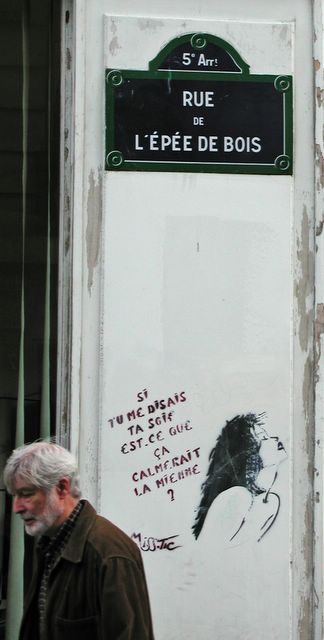 5e Arrt
RUE
DE
L'ÉPÉE DE BOIS
SI
TU ME DISAIS
TA SOIF
EST-CE QUE
ÇA
CALMERAIT
LA MIENNE
?
MISS.TIC